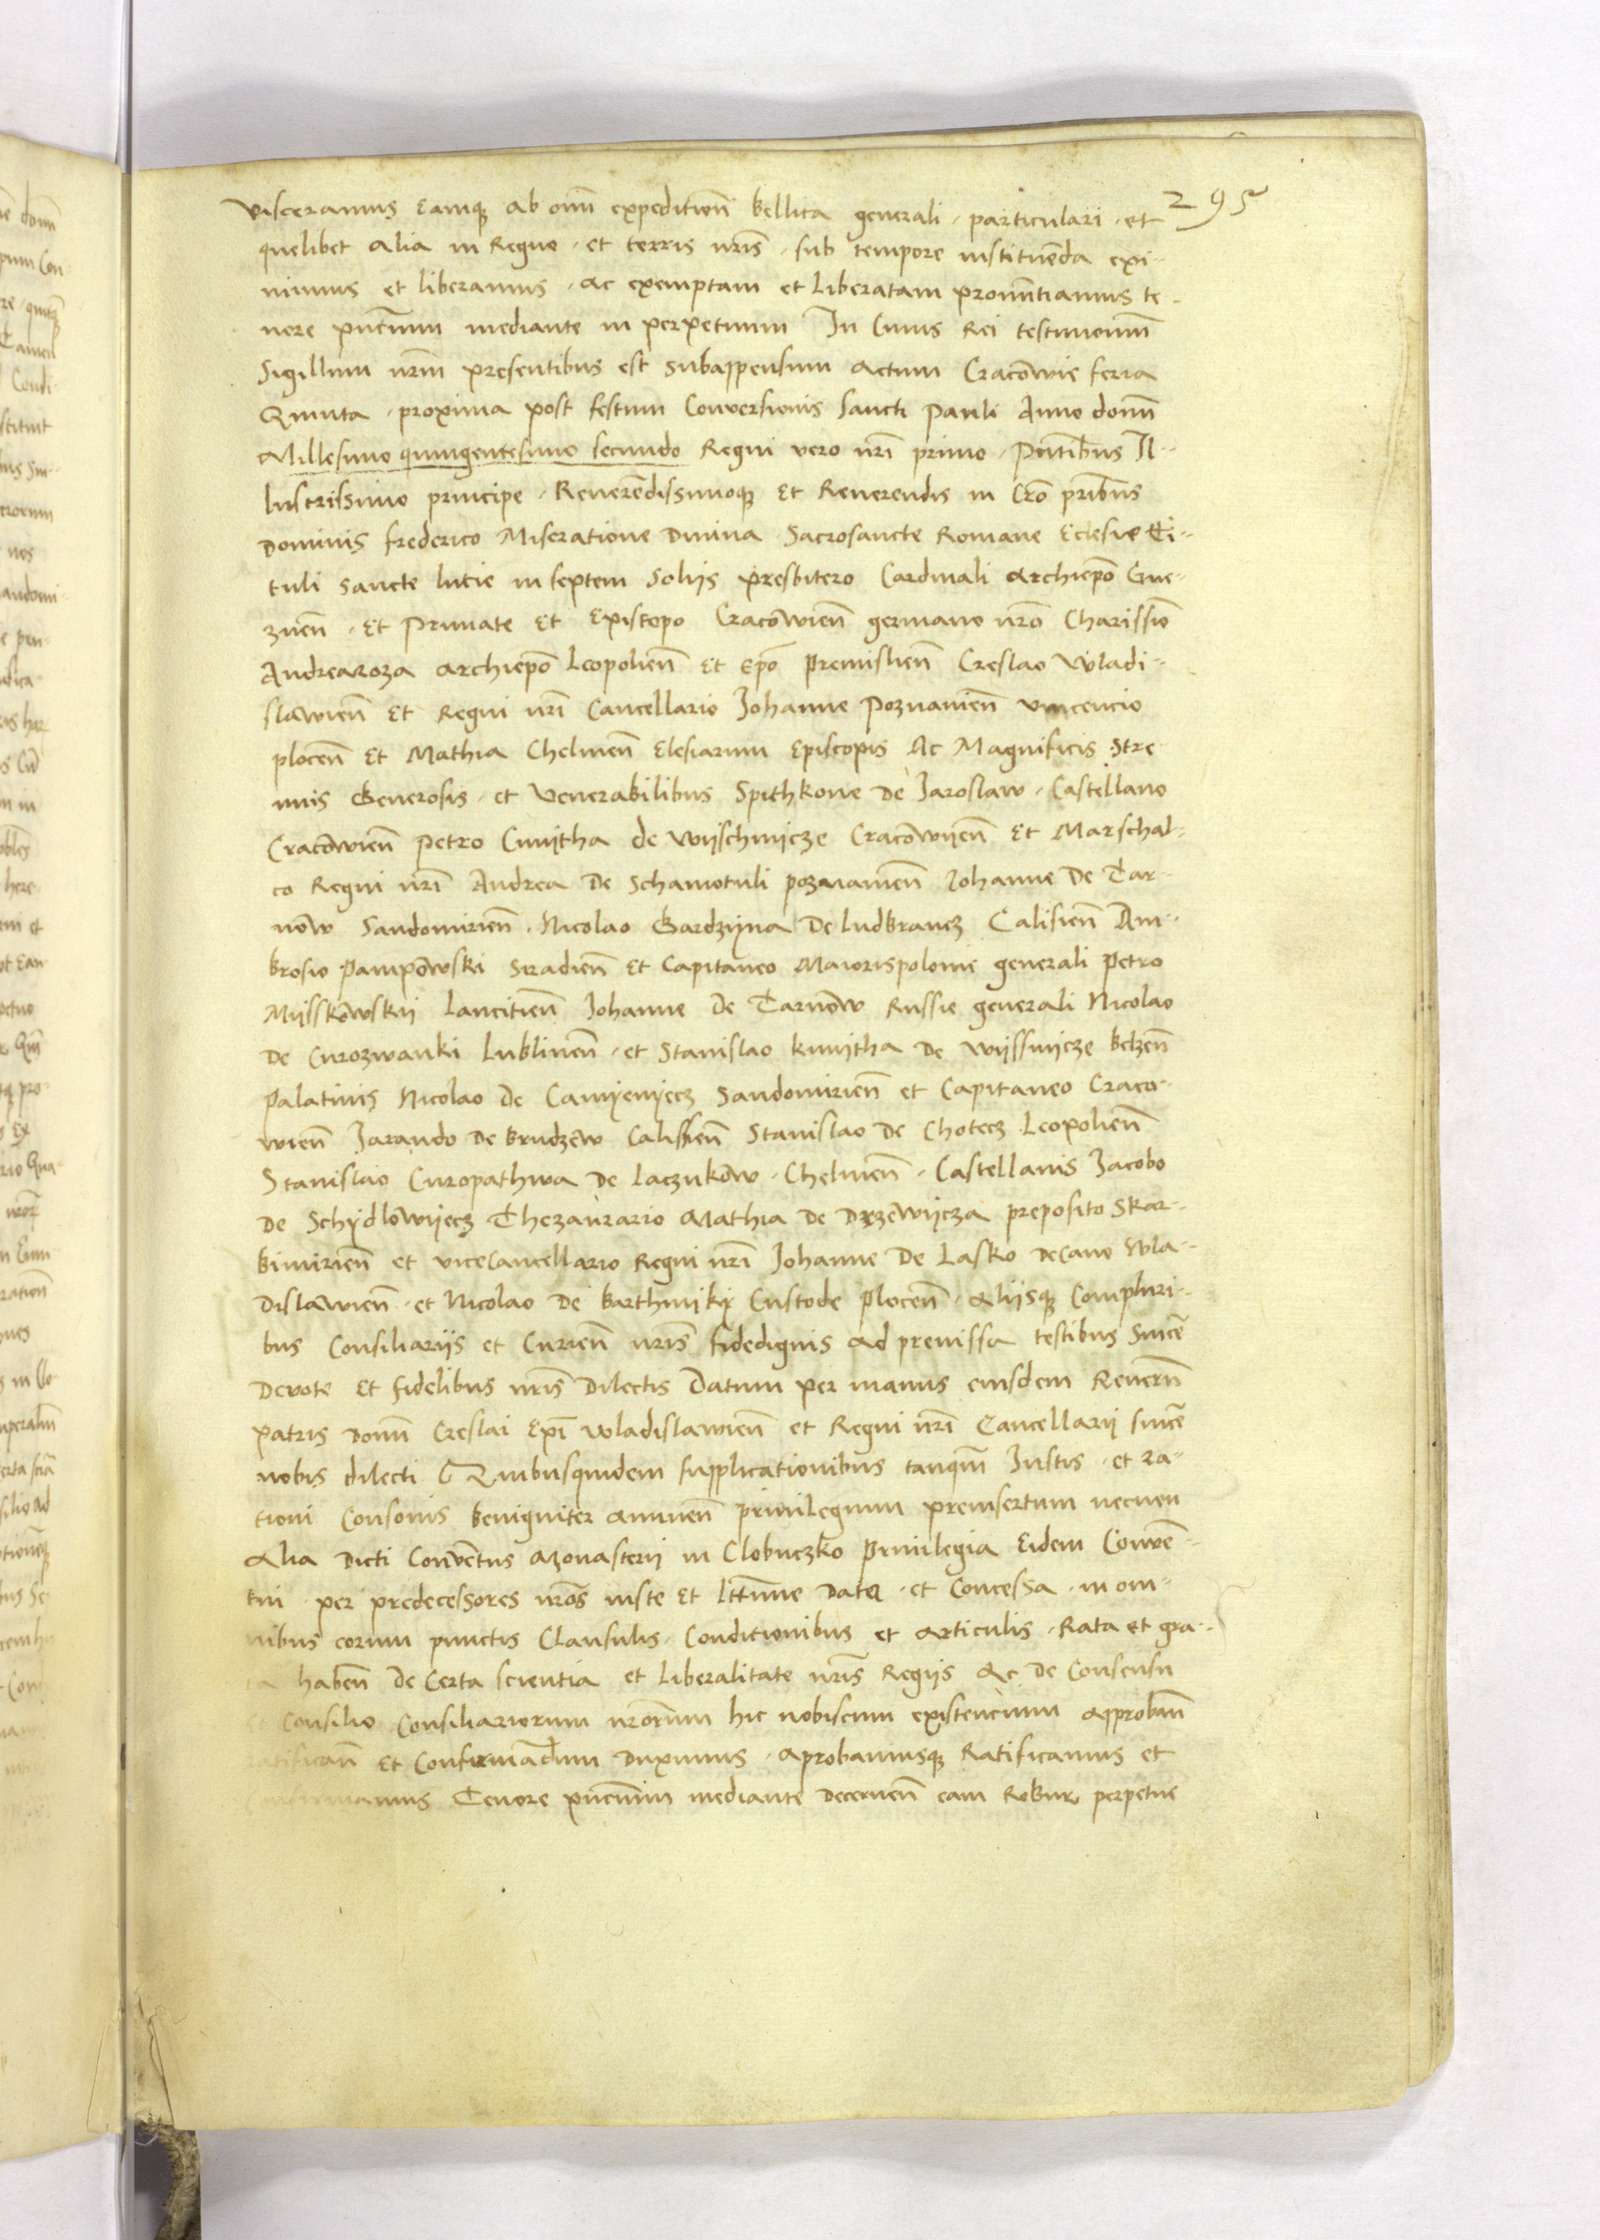 295
visceramus Eamque ab omni expeditione bellica generali · particulari · et
quelibet alia in Regno · et terris nris · sub tempore instituenda exi-
mimus et liberamus · ac exemptam et liberatam pronuntiamus te-
nore pntium mediante in perpetuum In Cuius Rei testimonium
Sigillum nrm presentibus est subappensum Actum Cracowie feria
Quinta · proxima post festum Conversionis Sancti Pauli Anno domi
Millesimo quingentesimo secundo Regni vero nri primo · Pntibus Il-
lustrissimo principe · Reverendissimoque Et Reverendis in Cro pribus
Dominis frederico Miseratione Divina Sacrosancte Romane Eclesie Ti-
tuli Sancte lucie in septem Soliis presbitero Cardinali Archiepo Gne-
znen · Et Primate Et Episcopo Cracowien germano nro Charissio
Andrea roza archiepo Leopolien Et Epo Premislien Creslao Wladi-
slawien Et Regni nri Cancellario Johanne Poznanien Vincencio
plocen Et Mathia Chelmen Elesiarum Episcopis Ac Magnificis Stre
nuis Generosis · et Venerabilibus Spithkone De Jaroslaw · Castellano
Cracowien Petro Cmijtha de Wijschnijcze Cracowijen Et Marschal-
co Regni nri Andrea De Schamotuli poznanien Johanne De Tar-
now Sandomirien · Nicolao Gardzijna De ludbrancz Calisien Am-
brosio Pampowski Siradien Et Capitaneo Maiorispolonie generali Petro
Mijsskowskij Lancitien Johanne De Tarnow Russie generali Nicolao
De Curozwanki Lublinen · et Stanislao kmijtha De Wijssnijcze belzen
Palatinis Nicolao De Camijenijecz Sandomirien et Capitaneo Craco-
wien Jarando De brudzew Calissien Stanislao De Chotecz Leopolien
Stanislao Curopathwa De Laczukow · Chelmen · Castellanis Jacobo
De Schijdlowijecz Thezaurario Mathia De Drzewijcza preposito Skar-
bimirien et viceCancellario Regni nri Johanne De Lasko Decano Wla-
Dislawien · et Nicolao De barthnikij Custode Plocen · aliisque Compluri-
bus Consiliariis et Curien nris fidedignis ad premissa testibus Since
Devote Et fidelibus nris Dilectis Datum per manus eiusdem Reveren
Patris Domi Creslai Epi Wladislawien et Regni nri Cancellarii since
nobis dilecti Quibusquidem supplicationibus tanqm Justis · et ra-
tioni Consonis benigniter annuen Privilegium preinsertum necnon
Alia Dicti Conventus Monasterii in Clobuczko Privilegia Eidem Conve-
tui · per predecessores nros iuste Et lttime Data · et Concessa · in om-
nibus eorum punctis Clausulis · Conditionibus et articulis · Rata et gra-
ta haben De Certa scientia et liberalitate nris Regiis Ac De Consensu
Et Consilio Consiliariorum nrorum hic nobiscum existencium approban
ratifican Et Confirmandum Duximus · Aprobamusque Ratificamus et
Tenore pntium mediante Decernen eam Robur perpetue